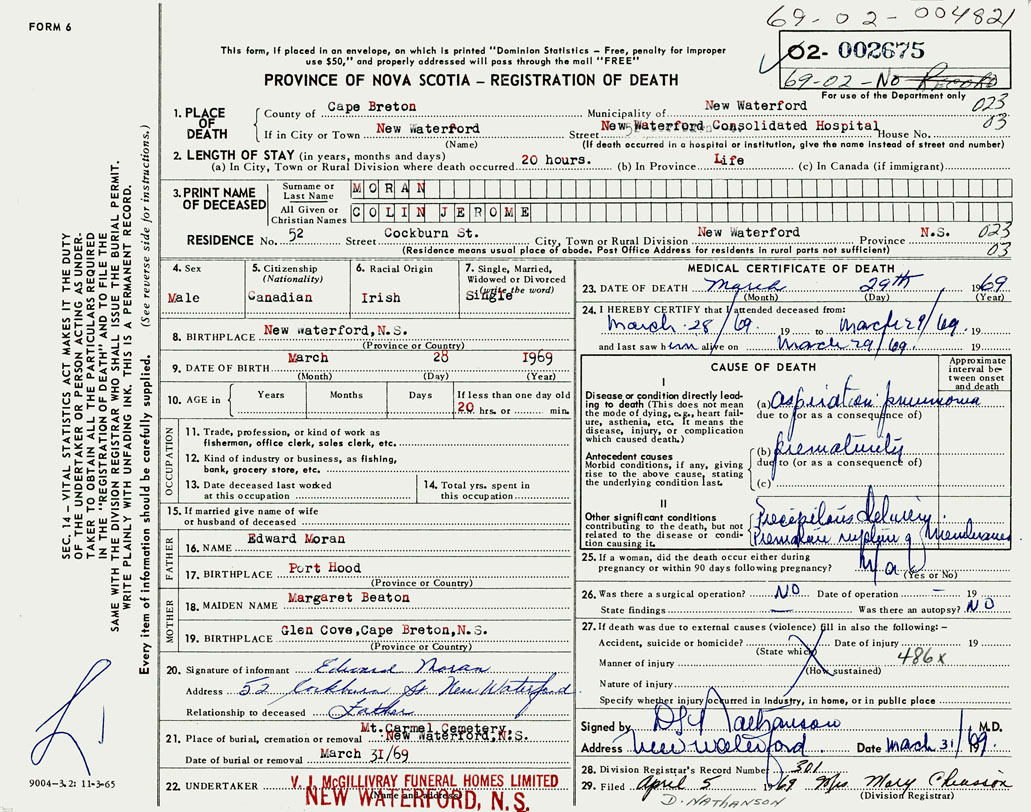 FORM 6
69-02-004821
This form, if placed in an envelope, on which is printed "Dominion Statistics – Free, penalty for improper
use $50," and properly addressed will pass through the mail "FREE"
02-002675
69-02-No Record
PROVINCE OF NOVA SCOTIA – REGISTRATION OF DEATH
For use of the Department only
1. PLACE OF DEATH
County of Cape Breton Municipality of New Waterford 023
If in City or Town New Waterford Street New Waterford Consolidated Hospital House No. 03
(Name) (If death occurred in a hospital or institution, give the name instead of street and number)
2. LENGTH OF STAY (in years, months and days)
(a) In City, Town or Rural Division where death occurred 20 hours. (b) In Province Life (c) In Canada (if immigrant)
3. PRINT NAME OF DECEASED
Surname or Last Name MORAN
All Given or Christian Names COLIN JEROME
RESIDENCE No. 52 Street Cockburn St. City, Town or Rural Division New Waterford Province N.S. 023
(Residence means usual place of abode. Post Office Address for residents in rural parts not sufficient) 03
4. Sex Male
5. Citizenship (Nationality) Canadian
6. Racial Origin Irish
7. Single, Married, Widowed or Divorced (write the word) Single
8. BIRTHPLACE New Waterford, N.S.
(Province or Country)
9. DATE OF BIRTH March 28 1969
(Month) (Day) (Year)
10. AGE in Years Months Days If less than one day old
20 hrs. or min.
OCCUPATION
11. Trade, profession, or kind of work as
fisherman, office clerk, sales clerk, etc.
12. Kind of industry or business, as fishing,
bank, grocery store, etc.
13. Date deceased last worked
at this occupation
14. Total yrs. spent in
this occupation
15. If married give name of wife
or husband of deceased
FATHER
16. NAME Edward Moran
17. BIRTHPLACE Port Hood
(Province or Country)
MOTHER
18. MAIDEN NAME Margaret Beaton
19. BIRTHPLACE Glen Cove, Cape Breton, N.S.
(Province or Country)
20. Signature of informant Edward Moran
Address 52 Cockburn St. New Waterford
Relationship to deceased Father
21. Place of burial, cremation or removal Mt. Carmel Cemetery,
New Waterford, N.S.
Date of burial or removal March 31/69
22. UNDERTAKER V. J. McGILLIVRAY FUNERAL HOMES LIMITED
(Name and address)
NEW WATERFORD, N.S.
MEDICAL CERTIFICATE OF DEATH
23. DATE OF DEATH March 29th 1969
(Month) (Day) (Year)
24. I HEREBY CERTIFY that I attended deceased from:
March 28/69. 19 to March 29/69. 19
and last saw him alive on March 29/69. 19
CAUSE OF DEATH
Approximate interval between onset and death
I
Disease or condition directly leading to death (This does not mean the mode of dying, e.g., heart failure, asthenia, etc. It means the disease, injury, or complication which caused death.)
(a) Aspiration pneumonia
due to (or as a consequence of)
Antecedent causes
Morbid conditions, if any, giving rise to the above cause, stating the underlying condition last.
(b) Prematurity
due to (or as a consequence of)
(c)
II
Other significant conditions
contributing to the death, but not related to the disease or condition causing it.
Precipitous delivery.
Premature rupture of Membranes
25. If a woman, did the death occur either during
pregnancy or within 90 days following pregnancy? n/a
(Yes or No)
26. Was there a surgical operation? NO Date of operation – 19
State findings — Was there an autopsy? NO
27. If death was due to external causes (violence) fill in also the following: –
Accident, suicide or homicide? Date of injury 19
(State which)
Manner of injury 486x
(How sustained)
Nature of injury
Specify whether injury occurred in Industry, in home, or in public place
Signed by D S Nathanson M.D.
Address New Waterford Date March 31/69
28. Division Registrar's Record Number 301
29. Filed April 5 1969 Mrs Mary Chiasson
(Division Registrar)
D. NATHANSON
SEC. 14 – VITAL STATISTICS ACT MAKES IT THE DUTY
OF THE UNDERTAKER OR PERSON ACTING AS UNDER-
TAKER TO OBTAIN ALL THE PARTICULARS REQUIRED
IN THE "REGISTRATION OF DEATH" AND TO FILE THE
SAME WITH THE DIVISION REGISTRAR WHO SHALL ISSUE THE BURIAL PERMIT.
WRITE PLAINLY WITH UNFADING INK. THIS IS A PERMANENT RECORD.
Every item of information should be carefully supplied. (See reverse side for instructions.)
9004-3.2: 11-3-65